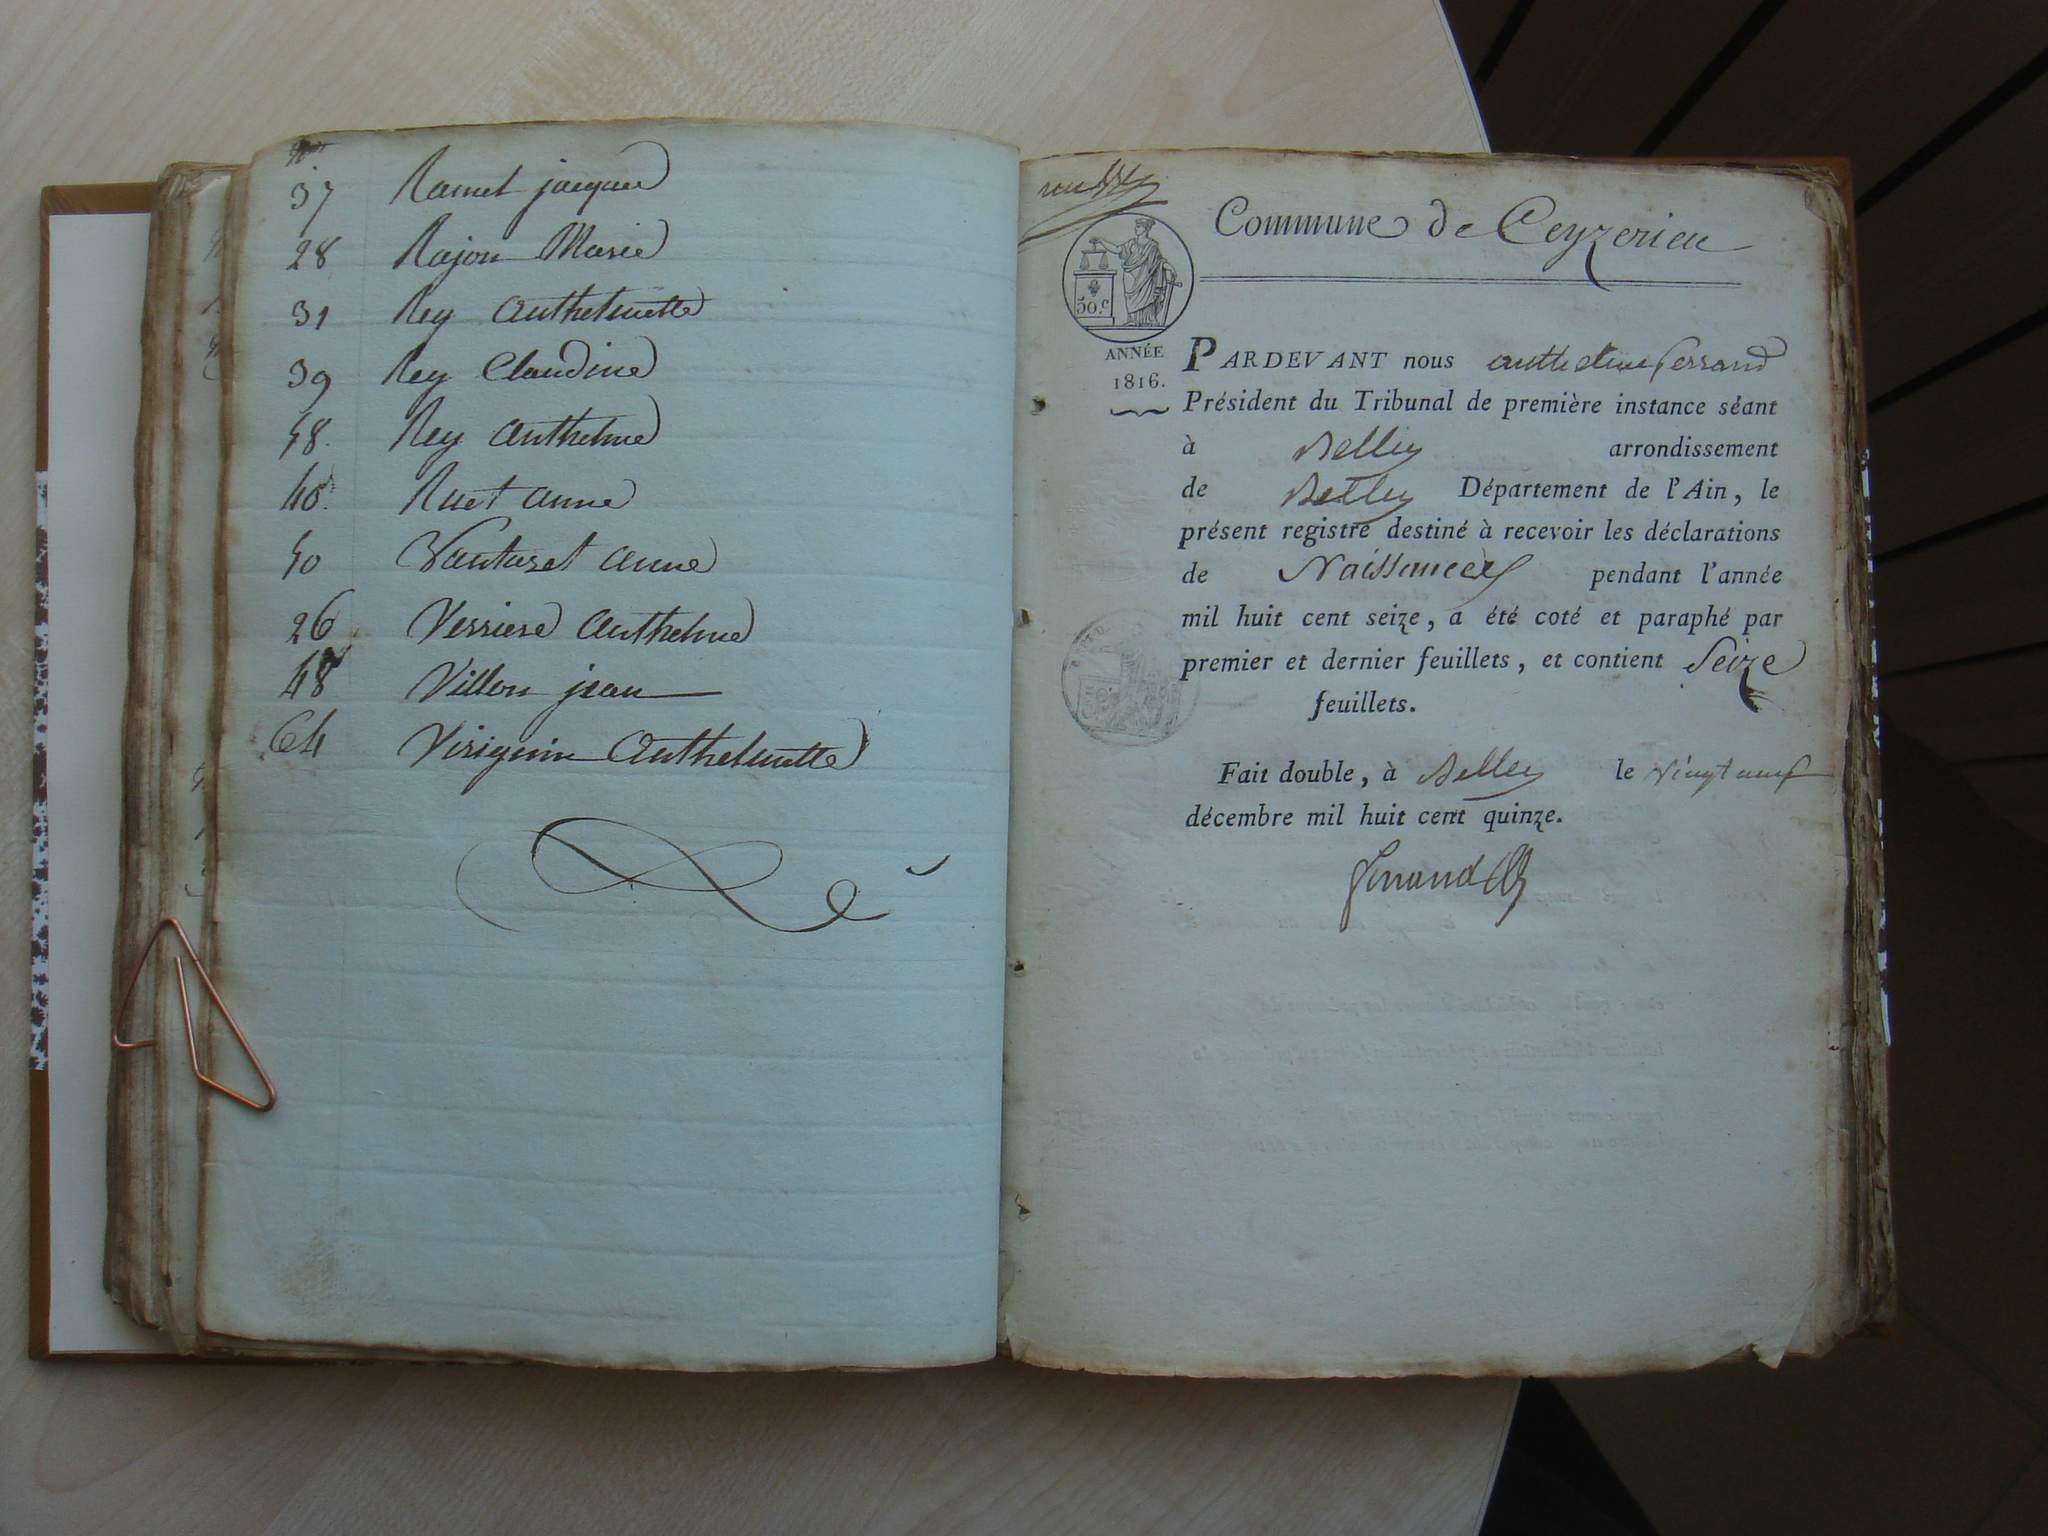 Nos
37 Ramel jacques
28 Rajon Marie
31 Rey Anthelmette
39 Rey Claudine
48. Rey Anthelme
40. Ruet Anne
50 Vanturet Anne
26 Verriere Anthelme
48 Villon jean
64 Virignin Anthelmette
Commune de Ceyzerieu
50.c
ANNÉE
1816.
PARDEVANT nous anthelme ferrand
Président du Tribunal de première instance séant
à Belley arrondissement
de Belley Département de l'Ain, le
présent registre destiné à recevoir les déclarations
de Naissances pendant l'année
mil huit cent seize, a été coté et paraphé par
premier et dernier feuillets, et contient Seize
feuillets.
Fait double, à Belley le vingt neuf
décembre mil huit cent quinze.
ferrand